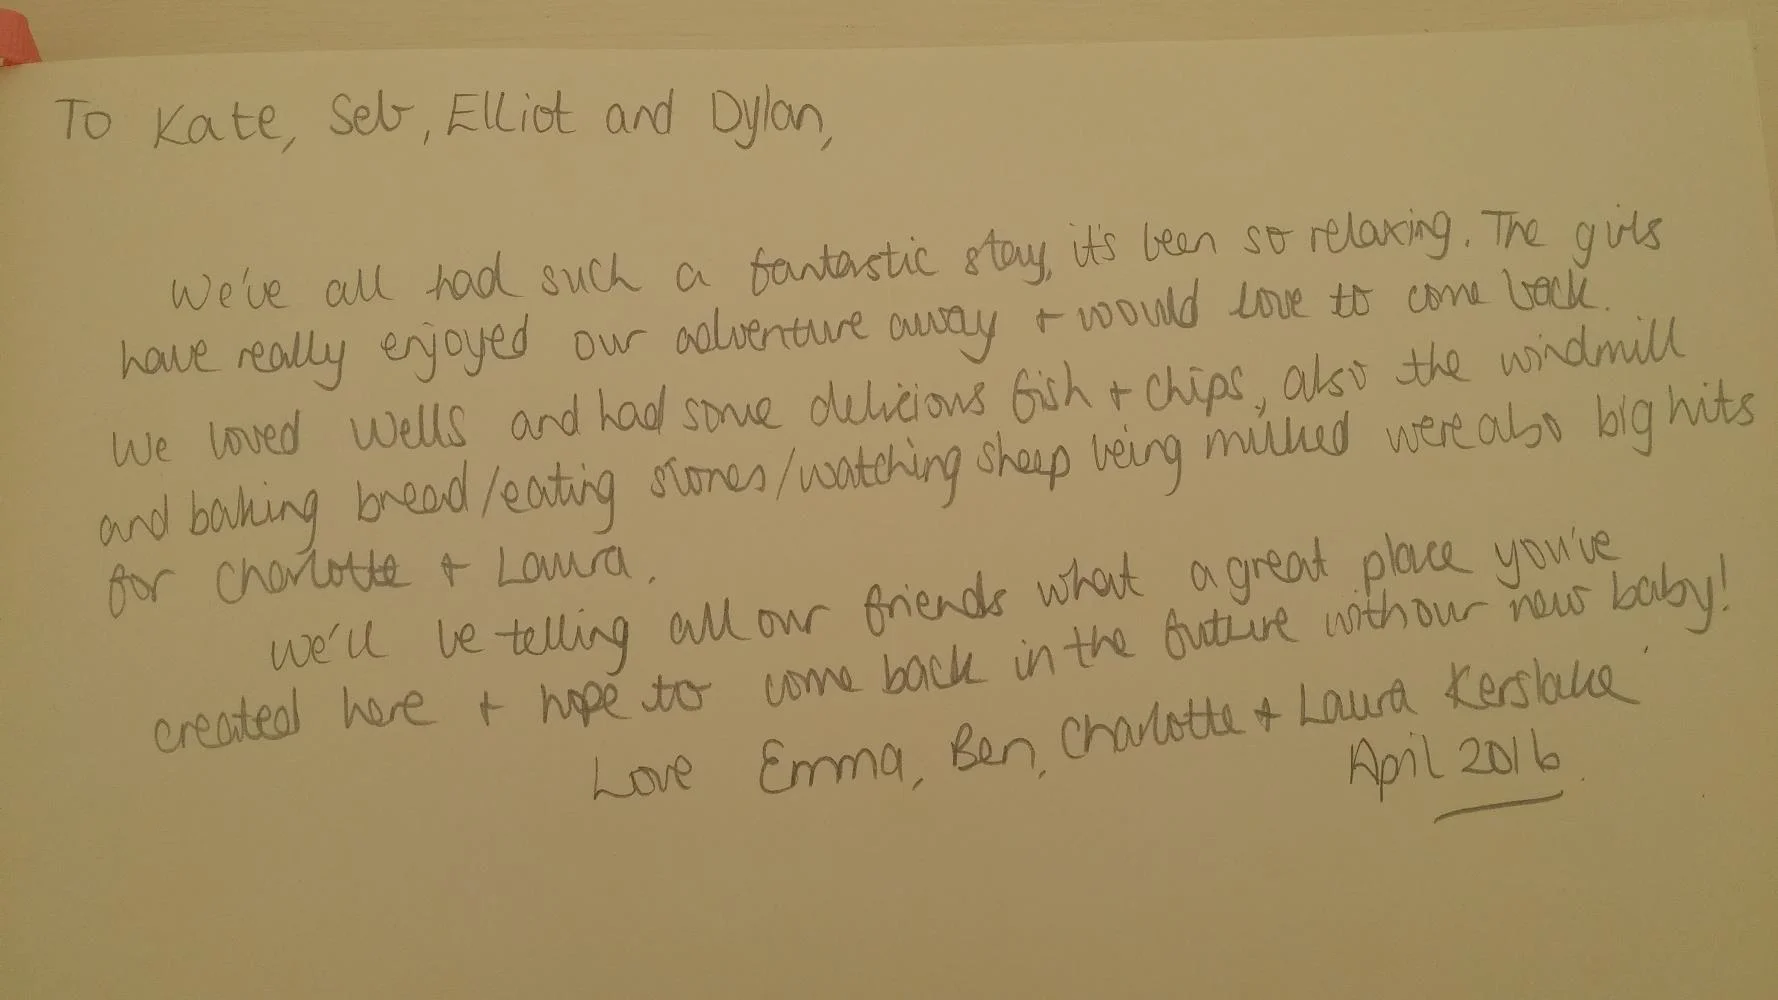 To Kate, Seb, Elliot and Dylan,
We've all had such a fantastic stay, it's been so relaxing. The girls
have really enjoyed our adventure away + would love to come back.
We loved Wells and had some delicious fish + chips, also the windmill
and baking bread/eating scones/watching sheep being milked were also big hits
for Charlotte + Laura.
We'll be telling all our friends what a great place you've
created here + hope to come back in the future with our new baby!
Love Emma, Ben, Charlotte + Laura Kerslake
April 2016